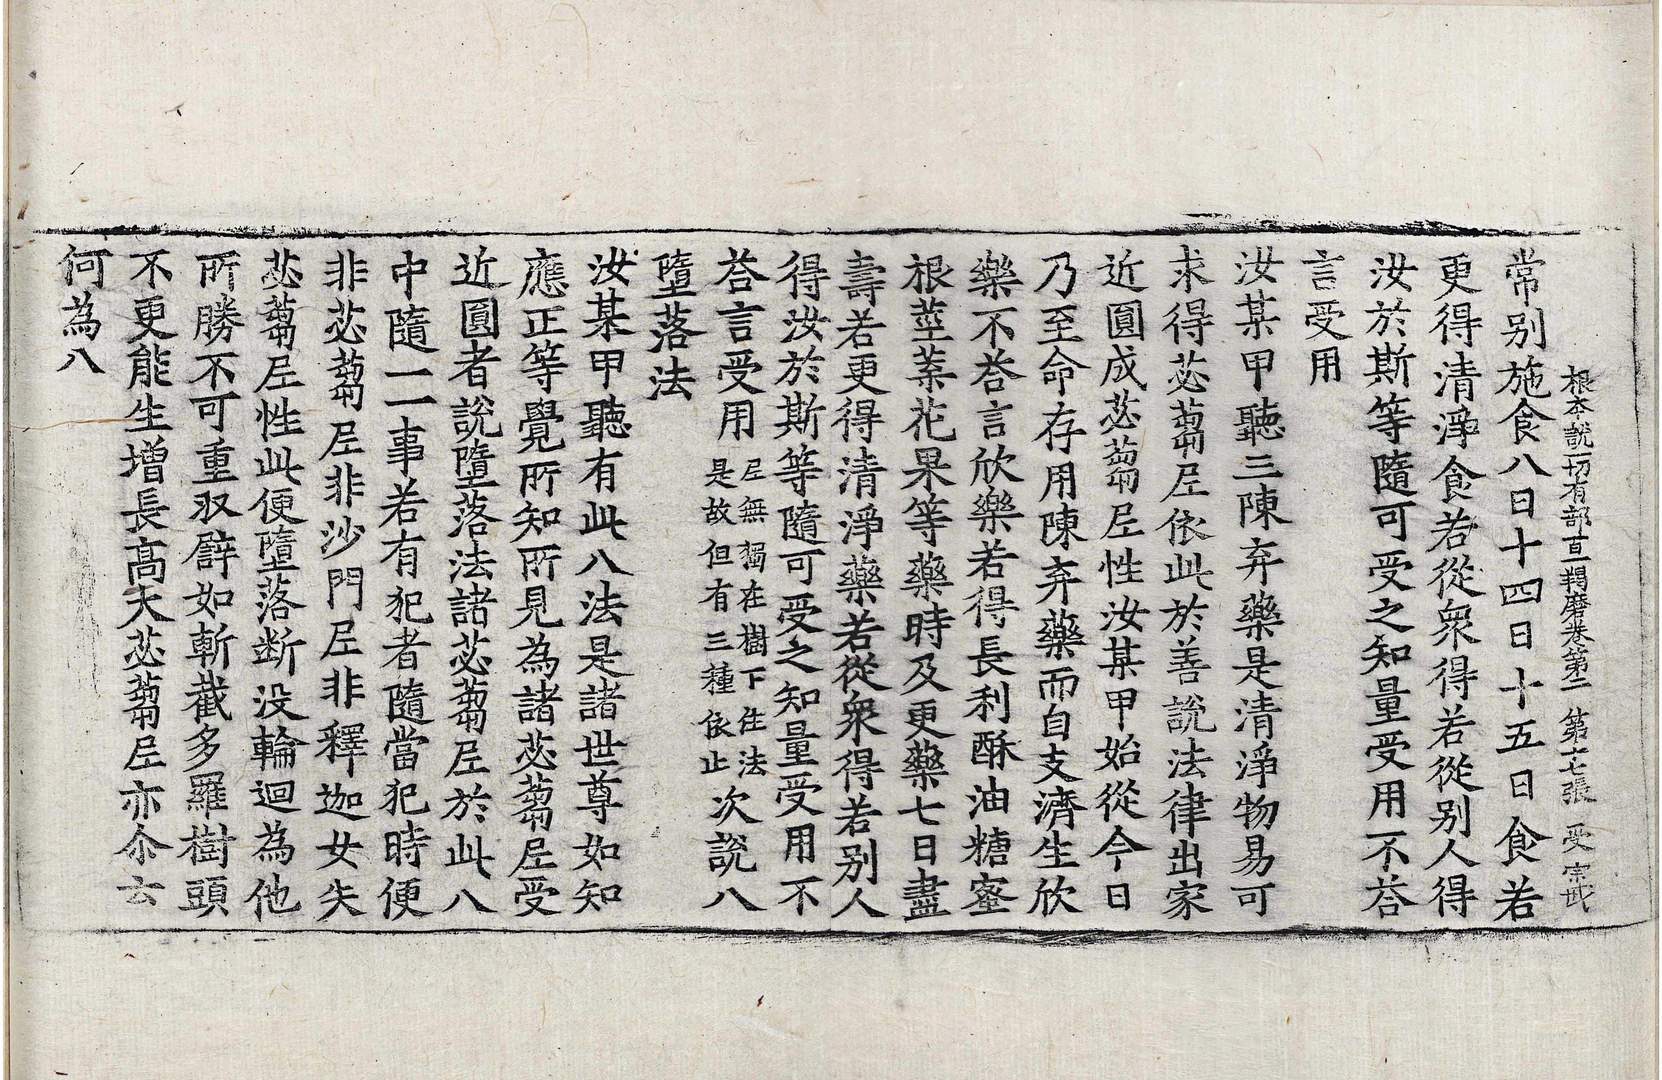 根本說一切有部百一羯磨卷第二 第七張 受 宗甙
常別施食八日十四日十五日食若
更得清淨食若從衆得若從別人得
汝於斯等隨可受之知量受用不荅
言受用
汝某甲聽三陳弃藥是清淨物易可
求得苾蒭尼依此於善說法律出家
近圓成苾蒭尼性汝某甲始從今日
乃至命存用陳弃藥而自支濟生欣
樂不荅言欣樂若得長利酥油糖蜜
根莖葉花果等藥時及更藥七日盡
壽若更得清淨藥若從衆得若別人
得汝於斯等隨可受之知量受用不
荅言受用 尼無獨在樹下住法是故但有三種依止 次說八
墮落法
汝某甲聽有此八法是諸世尊如知
應正等覺所知所見為諸苾蒭尼受
近圓者說墮落法諸苾蒭尼於此八
中隨一一事若有犯者隨當犯時便
非苾蒭尼非沙門尼非釋迦女失
苾蒭尼性此便墮落断没輪迴為他
所勝不可重収譬如斬截多羅樹頭
不更能生增長高大苾蒭尼亦尒云
何為八